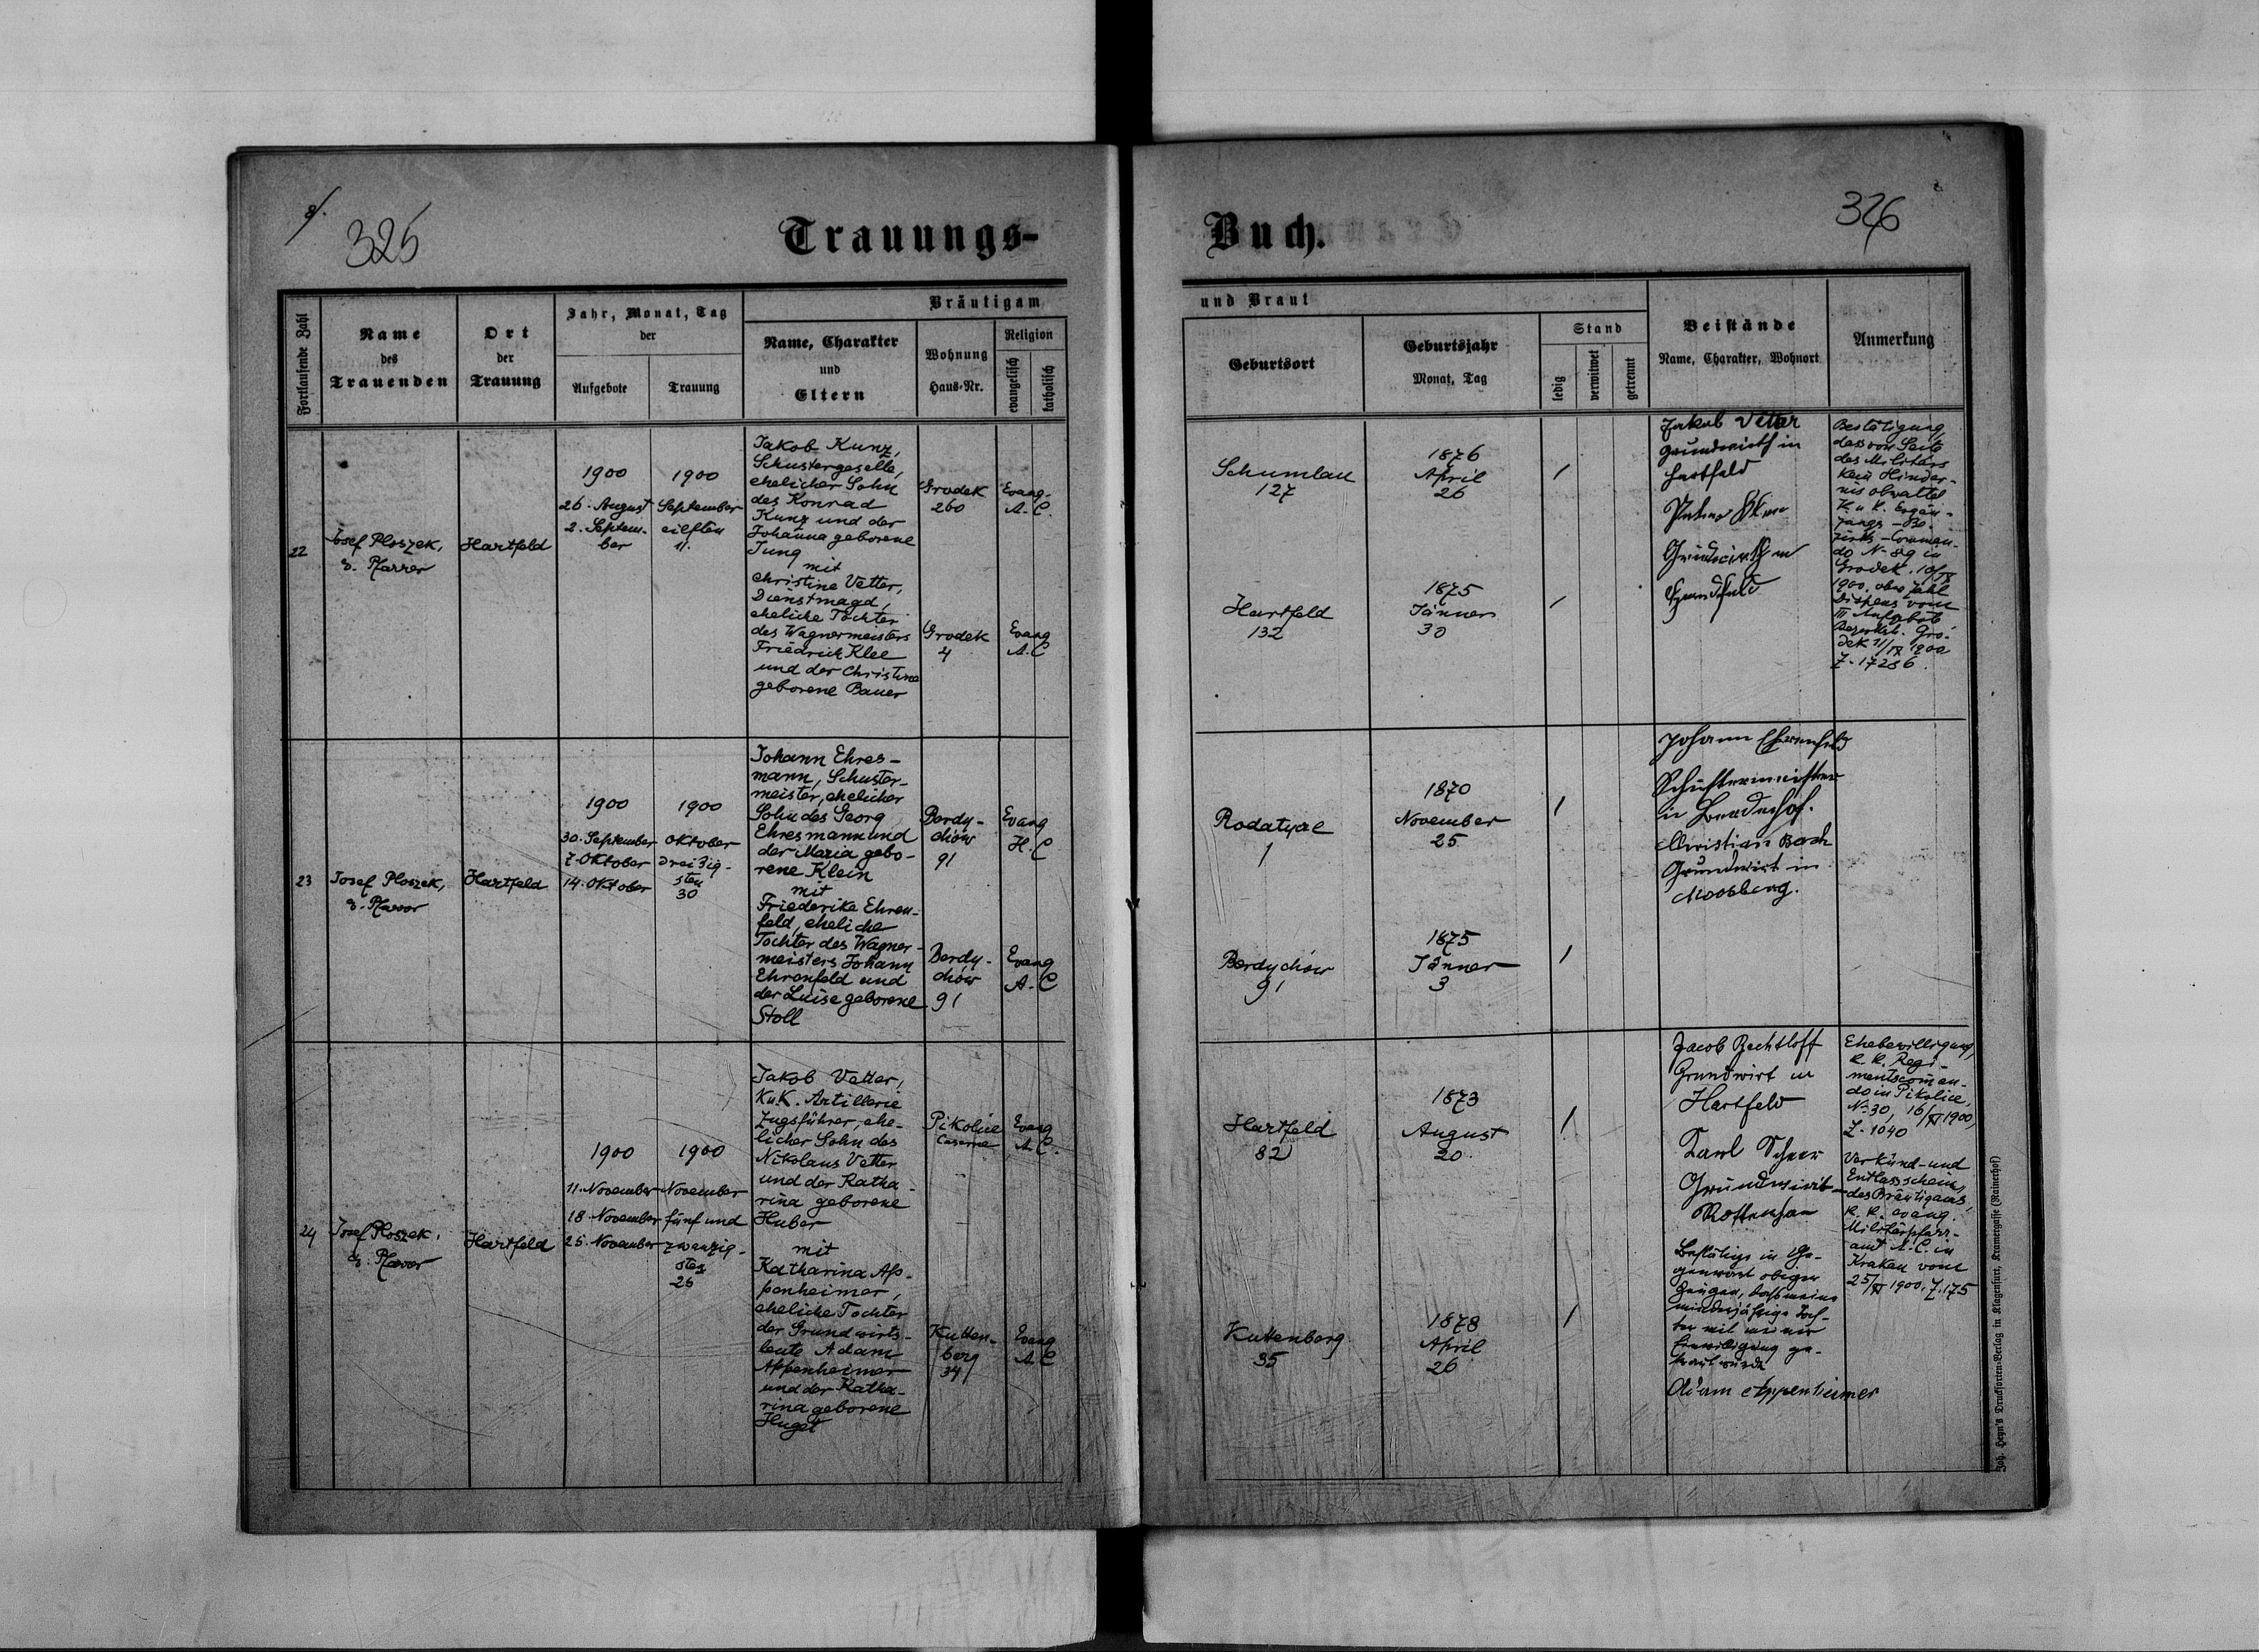 8.
325
Trauungs-
Fortlaufende Zahl
Name
des
Trauenden
Ort
der
Trauung
Jahr, Monat, Tag
der
Aufgebote
Trauung
Bräutigam
Name, Charakter
und
Eltern
Wohnung
Haus-Nr.
Religion
evangelisch
katholisch
22
Josef Ploszek,
ev. Pfarrer
Hartfeld
1900
26. August
2. Septem-
ber
1900
September
eilften
11.
Jakob Kunz,
Schustergeselle,
ehelicher Sohn
des Konrad
Kunz und der
Johanna geborene
Jung
mit
Christine Vetter,
Dienstmagd,
eheliche Tochter
des Wagnermeisters
Friedrich Klee
und der Christine
geborene Bauer
Grodek
260
Evang.
A. C.
Grodek
4
Evang
A. C
23
Josef Ploszek,
ev. Pfarrer
Hartfeld
1900
30. September
7. Oktober
14. Oktober
1900
Oktober
dreißig-
sten
30
Johann Ehres-
mann, Schuster-
meister, ehelicher
Sohn des Georg
Ehresmann und
der Maria gebo-
rene Klein
mit
Friederike Ehren-
feld, eheliche
Tochter des Wagner-
meisters Johann
Ehrenfeld und
der Luise geborene
Stoll
Berdy-
chów
91
Evang
H. C
Berdy-
chów
91
Evang
A. C
24
Josef Ploszek,
ev. Pfarrer
Hartfeld
1900
11. November
18. November
25. November
1900
November
fünf und
zwanzig-
sten
25
Jakob Vetter,
K.u.K. Artillerie
Zugsführer, ehe-
licher Sohn des
Nikolaus Vetter
und der Katha-
rina geborene
Huber
mit
Katharina Ap-
penheimer,
eheliche Tochter
der Grundwirts-
leute Adam
Appenheimer
und der Katha-
rina geborene
Huget
Pikolice
Caserne
Evang
A. C.
Kutten-
berg
34
Evang
A. C
326
Buch.
und Braut
Geburtsort
Geburtsjahr
Monat, Tag
Stand
ledig
verwitwet
getrennt
Beistände
Name, Charakter, Wohnort
Anmerkung
Schumlau
127
1876
April
26
Hartfeld
132
1875
Jänner
30
Jakob Vetter
Grundwirth in
Hartfeld
Grundwirth in
Bestätigung,
dass von Seite
des Militärs
kein Hinder-
nis obwaltet
K. u. K. Ergän-
zungs-Be-
zirks-Comman-
do N. 89 in
Grodek. 10/IX
1900. ohne Zahl
Dispens vom
III Aufgebot
Bezirksh. Gro-
dek 11/IX 1900
Z. 17286.
Rodatycze
1
1870
November
25
Berdychów
91
1875
Jänner
3
Johann Ehrenfeld
Schustermeister
in Brederhof.
Christian Bach
Grundwirt in
Moosberg.
Hartfeld
82
1873
August
20
Kuttenberg
35
1878
April
26
Jacob Bechtloff
Grundwirt in
Hartfeld
Karl Scherr
Grundwirt
Rottenhan
Bestätige in Ge-
genwart obiger
Zeugen, daß meine
minderjährige Toch-
ter mit meiner
Einwilligung ge-
traut wurde
Adam Appenheimer
Ehebewilligung,
K. K. Regi-
mentscoman-
do in Pikolice,
No 30, 16/XI 1900,
Z. 1040
Verkünd- und
Entlassschein,
des Bräutigams,
K. K. evang.
Militärpfarr-
amt A. C. in
Krakau vom
25/XI 1900. Z. 175
Joh. Heyn's Drucksorten-Verlag in Klagenfurt, Kramergasse (Rainerhof)